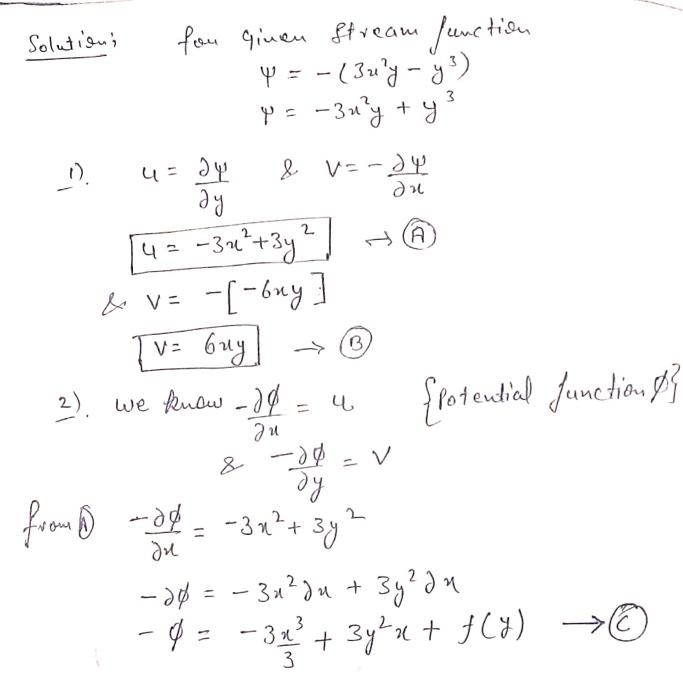 Solution; for given stream function
ψ = -(3x²y - y³)
ψ = -3x²y + y³
1). u = ∂ψ/∂y & v = -∂ψ/∂x
u = -3x² + 3y² → Ⓐ
& v = -[-6xy]
v = 6xy → Ⓑ
2). we know -∂ϕ/∂x = u {potential function ϕ}
& -∂ϕ/∂y = v
from Ⓐ -∂ϕ/∂x = -3x² + 3y²
-∂ϕ = -3x²∂x + 3y²∂x
-ϕ = -3x³/3 + 3y²x + f(y) → Ⓒ